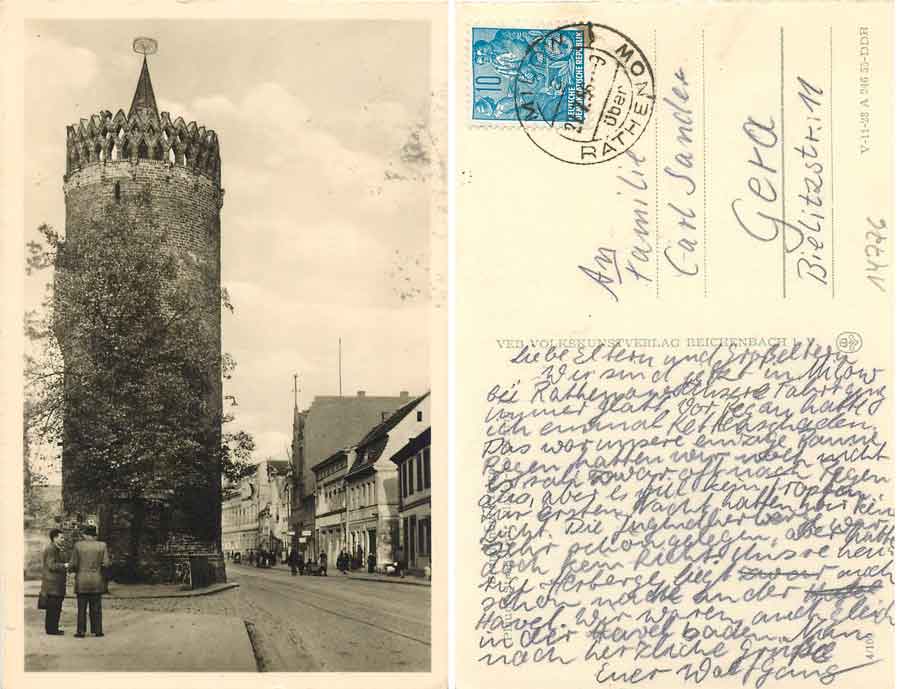 10
DEUTSCHE
DEMOKRATISCHE REPUBLIK
über
RATHEN
An
Familie
Carl Sander
Gera
Bielitzstr. 11
V-11-28 A 246 55-DDR
14776
VEB VOLKSKUNSTVERLAG REICHENBACH i. V.
Liebe Eltern und Großeltern
Wir sind jetzt in Milow
bei Rathenow. Unsere Fahrt ging
immer glatt. Vor hatte
ich einmal Kettenschaden.
Das war unsere einzige Panne
Regen hatten wir noch nicht
es sah zwar oft nach Regen
aus, aber es fiel kein Tropfen.
Zur ersten Nacht hatten wir kein
Licht. Die Jugendher war
sehr schön gelegen, aber hatte
doch kein Licht. Unsre heu-
tige Herberge liegt zwar auch
schön, nahe an der
Havel. Wir waren auch gleich
in der Havel baden. Nun
noch herzliche Grüße
Euer Wolfgang
4/100